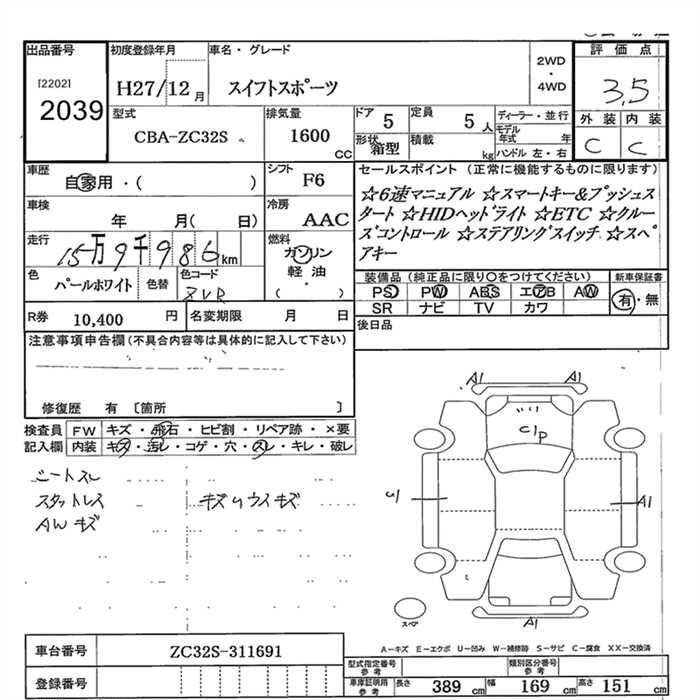 出品番号
[2202]
2039
初度登録年月
H27/12月
車名・グレード
スイフトスポーツ
2WD
・
4WD
評価点
3.5
外装 内装
C C
型式
CBA-ZC32S
排気量
1600
CC
ドア
5
形状
箱型
定員
5人
積載
kg
ディーラー・並行
モデル年式 年
ハンドル 左・右
車歴
自家用・( )
シフト
F6
車検
年 月( 日)
冷房
AAC
走行
15万9千986km
燃料
ガソリン
軽油
( )
色
パールホワイト
色替
色コード
ZVR
R券
10,400円
名変期限 月 日
セールスポイント (正常に機能するものに限ります)
☆6速マニュアル ☆スマートキー&プッシュス
タート ☆HIDヘッドライト ☆ETC ☆クルー
ズコントロール ☆ステアリングスイッチ ☆スペ
アキー
装備品 (純正品に限り○をつけてください)
PS PW ABS エアB AW
SR ナビ TV カワ
新車保証書
有・無
後日品
注意事項申告欄(不具合内容等は具体的に記入して下さい)
修復歴 有 〔箇所 〕
検査員
記入欄
FW キズ・飛石・ヒビ割・リペア跡・×要
内装 キズ・汚レ・コゲ・穴・スレ・キレ・破レ
シートスレ
スタットレス
AWキズ
キズ
A1
A1
A1
A1
スペ
A―キズ E―エクボ U―凹み W―補修跡 S―サビ C―腐食 XX―交換済
車台番号
ZC32S-311691
登録番号
型式指定番号
参考
類別区分番号
参考
車庫証明用
参考
長さ 389 cm
幅 169 cm
高さ 151 cm